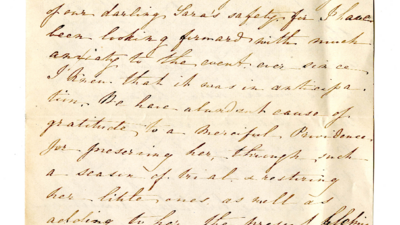 of our darling Sara's safety, for I have
been looking forward with much
anxiety to the event ever since
I knew that it was in anticipa
tion. We have abundent cause of
gratitude to a Merciful Providence
for preserving her, through such
a season of trial, & restoring
her little ones, as well as
adding to her the present